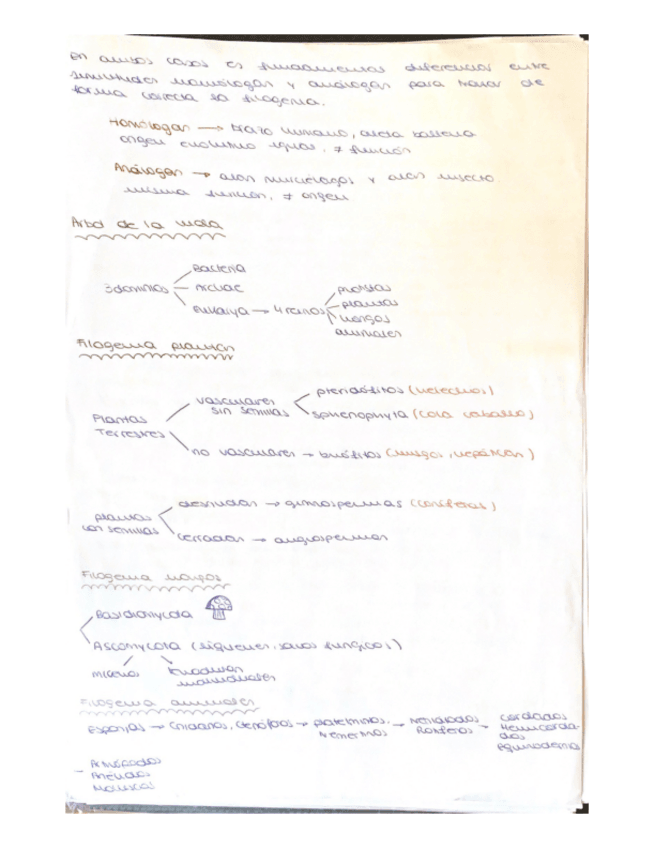 En ambos casos es fundamental diferenciar entre
similitudes homólogas y análogas para trazar de
forma correcta la filogenia.
Homólogas → brazo humano, aleta ballena
origen evolutivo igual, ≠ función
Análogas → alas murciélagos y alas insecto
misma función, ≠ origen
Árbol de la vida
3 dominios
Bacteria
Archae
Eukarya → 4 reinos
protistas
plantas
hongos
animales
Filogenia plantas
Plantas
Terrestres
vasculares
sin semillas
pteridófitos (helechos)
sphenophyta (cola caballo)
no vasculares → briófitos (musgos, hepáticas)
plantas
con semillas
desnudas → gimnospermas (coníferas)
cerradas → angiospermas
Filogenia hongos
Basidiomycota
Ascomycota (líquenes, fúngicos)
Filogenia animales
Esponjas → Cnidarios, Ctenóforos → platelmintos,
Nemertinos → Nematodos
Rotíferos → Cordados
Hemicorda-
dos
Equinodermos
Artrópodos
Anélidos
Moluscos